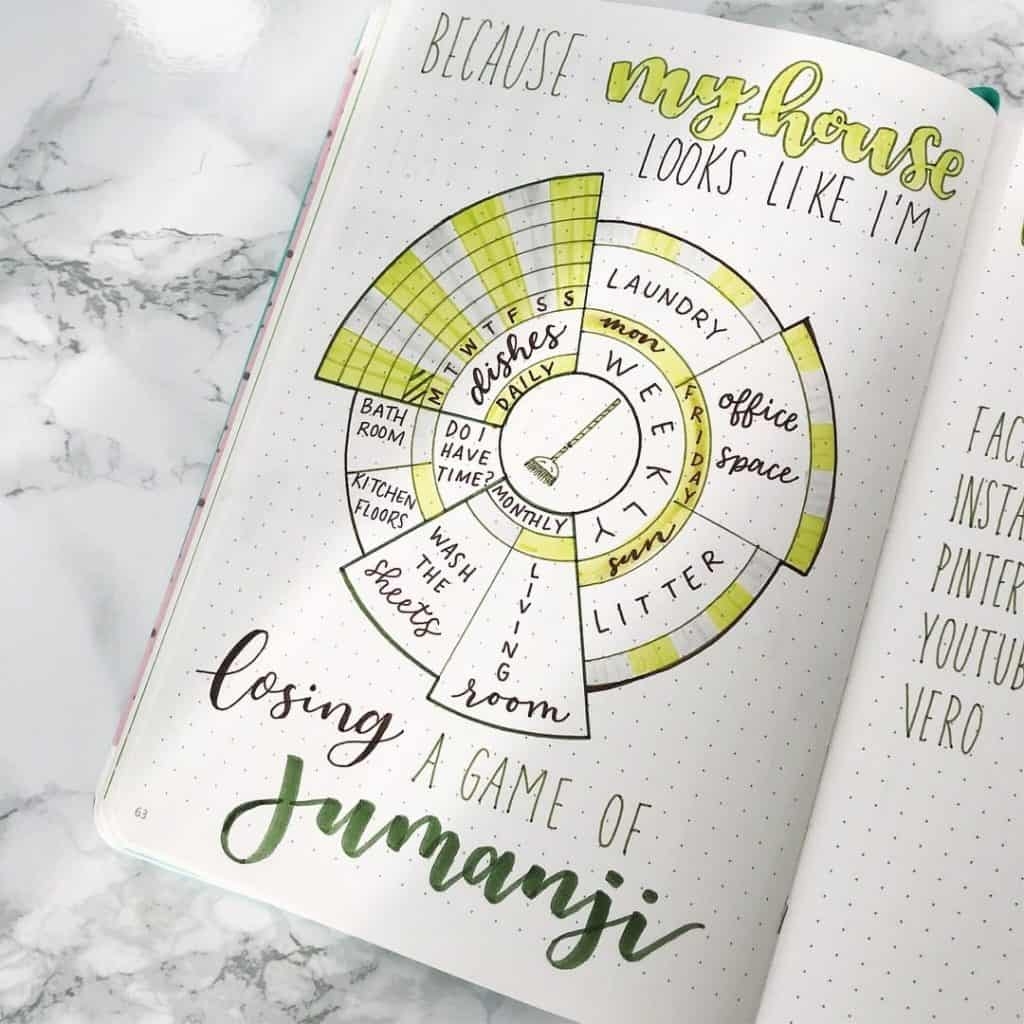 BECAUSE my house
LOOKS LIKE I'M
M T W T F S S
dishes
DAILY
LAUNDRY
mon
WEEKLY
FRIDAY
office
space
sun
LITTER
BATH
ROOM
DO I
HAVE
TIME?
KITCHEN
FLOORS
MONTHLY
WASH
THE
sheets
LIVING
room
losing
A GAME OF
Jumanji
63
VERO